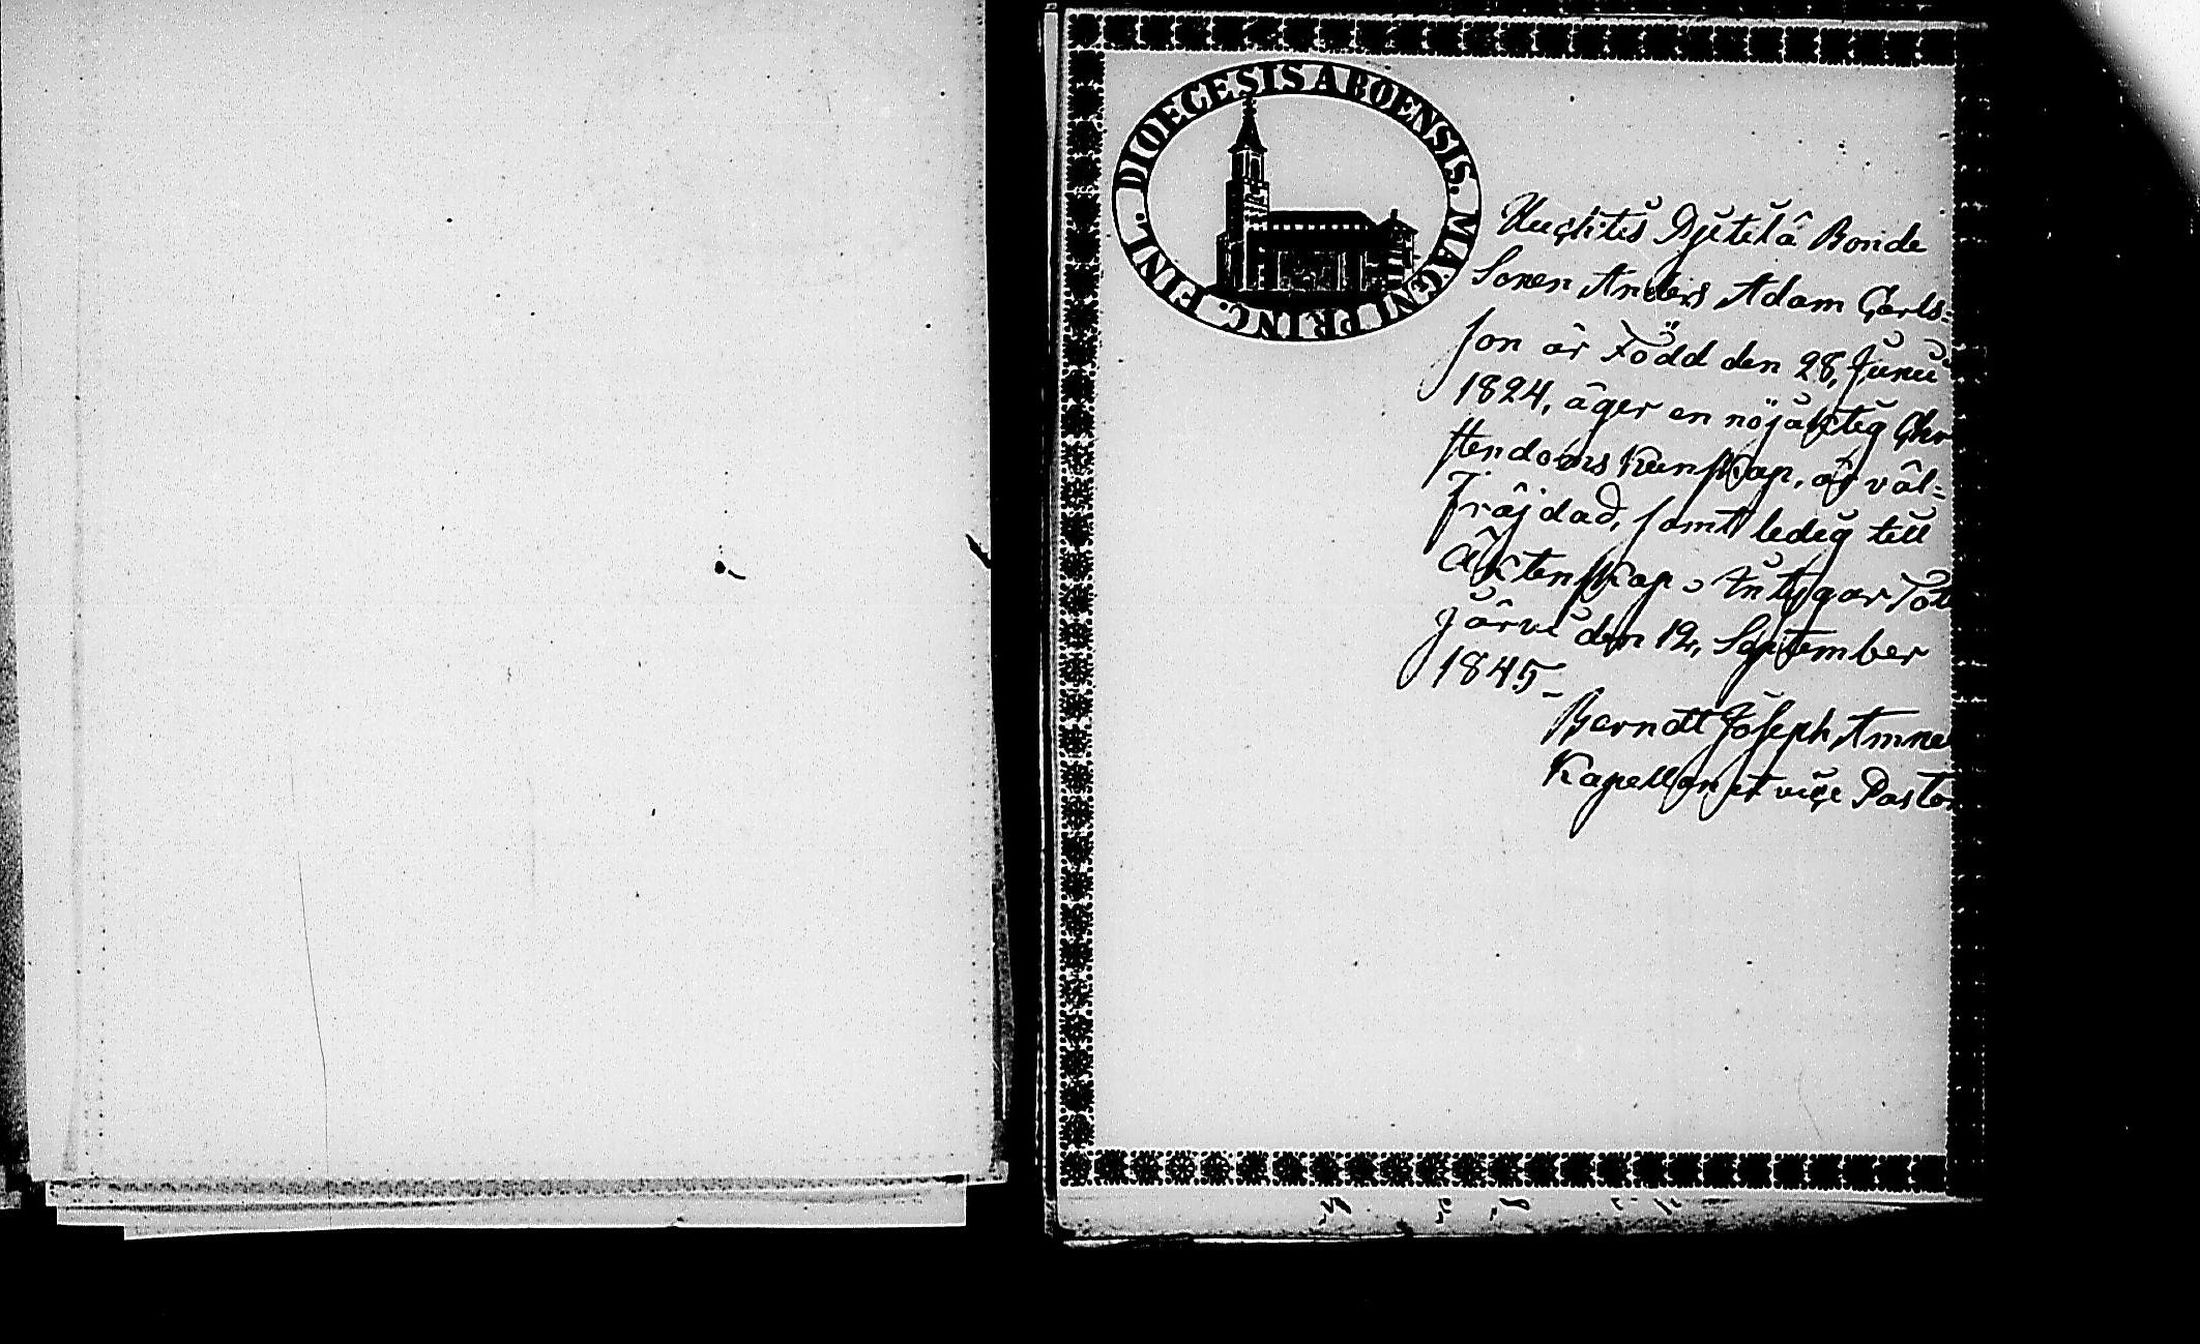 DIOECESIS ABOENSIS. MAGNI PRINC. FINL.
Bonde
Sonen Anders Adam Carls=
son är Född den 28, Junii
1824, äger en nöjaktig Chr
stendoms Kunskap, är väl=
fräjdad, samt ledig till
Äktenskap, intygar
järvi den 12, September
1845_
Berndt Joseph Amne
Kapellan et viçe Pastor